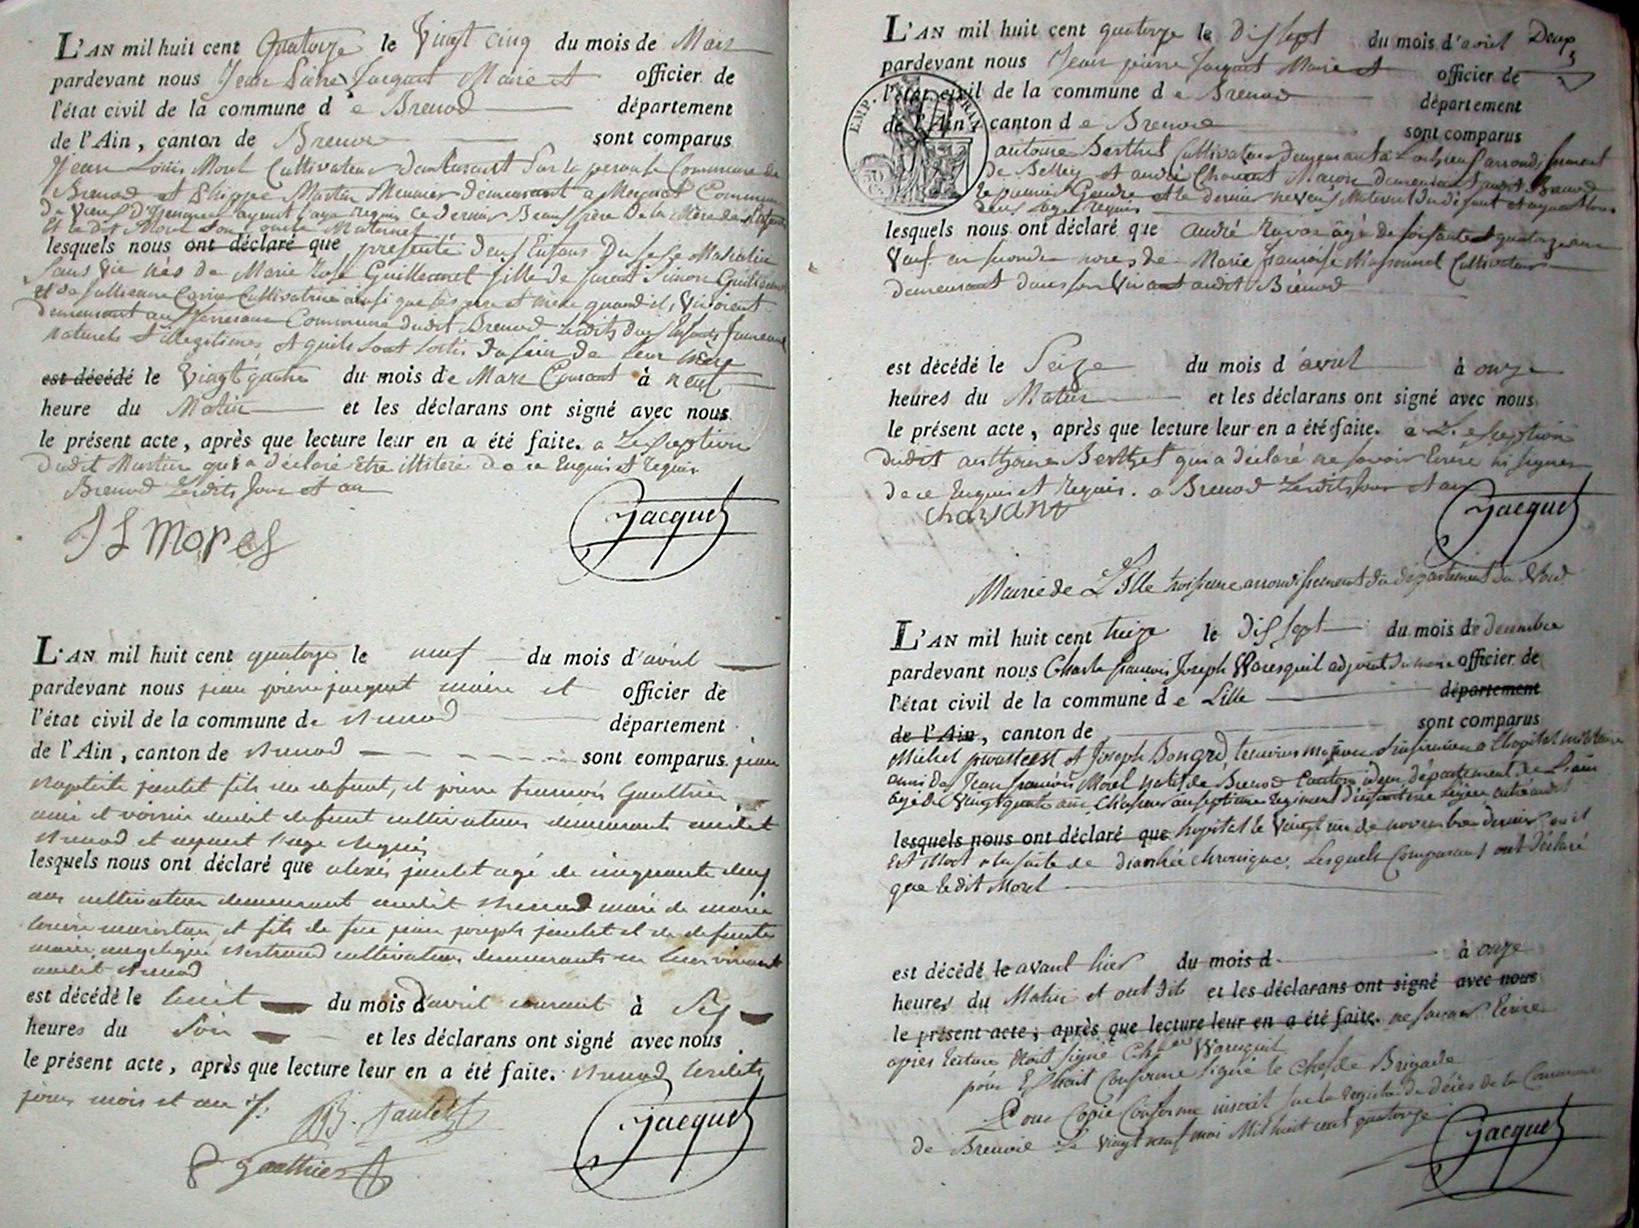 L'AN mil huit cent Quatorze le Vingt cinq du mois de Mars
pardevant nous Jean Pierre Jacquet Maire et officier de
l'état civil de la commune de Brenod département
de l'Ain, canton de Brenod sont comparus
Jean Louis Morel Cultivateur demeurant Sur la perouse Commune de
Brenod et Philippe Martin Meunier demeurant a Meyriat Commune
de Vieux d'Yzenave ayant l'age requis ce dernier Beau frère de la Mère des
et le dit Morel son Maternel
lesquels nous ont déclaré que présenté deux Enfans Du Sexe Masculin
Sans Vie nés de Marie Rose Guillermet fille de Simon
et de Cultivatrice ainsi que ses pere et mere quand ils Vivoient
demeurant au Commune dudit Brenod Lesdits deux Enfans
naturels et illegitimes et quils sont sortis Du sein de leur Mère
est décédé le Vingt quatre du mois de Mars Courant à neuf
heure du Matin et les déclarans ont signé avec nous
le présent acte, après que lecture leur en a été faite. a L'exception
dudit Martin qui a déclaré Etre illitéré de ce Enquis et Requis
Brenod Lesdits Jour et an
J L Morel Jacquet
L'AN mil huit cent quatorze le neuf du mois d'avril
pardevant nous jean pierre jacquet maire et officier de
l'état civil de la commune de Brenod département
de l'Ain, canton de Brenod sont comparus jean
baptiste jautet fils du defunt, et pierre françois Gauthier
ami et voisin dudit defunt cultivateurs demeurants audit
Brenod et ayant l'age Requis
lesquels nous ont déclaré que alexis jautet agé de cinquante deux
ans cultivateur demeurant audit Brenod mari de marie
et fils de feu jean joseph jautet et de defunte
marie angelique Bertrand cultivateurs demeurants en leur vivant
audit Brenod
est décédé le huit du mois d'avril courant à Six
heures du Soir et les déclarans ont signé avec nous
le présent acte, après que lecture leur en a été faite. Brenod lesdits
jour mois et an
JB. Jautet Jacquet
P gauthier
L'AN mil huit cent quatorze le Dix sept du mois d'avril Deux
pardevant nous Jean pierre Jacquet Maire et officier de
l'état civil de la commune de Brenod département
de l'Ain, canton de Brenod sont comparus
EMP. FRAN.
antoine Berthet Cultivateur Demeurant a arrondissement
de Belley et andré Chavant Maçon Demeurant audit Brenod
le premier Gendre et le dernier neveu Maternel du défunt et ayant tous
deux l'age requis
lesquels nous ont déclaré que andré Ravoz agé de soixante et quatorze ans
Veuf en secondes noces de Marie françoise Massonnet Cultivateur
demeurant dans son Vivant audit Brénod
est décédé le Seize du mois d'avril à onze
heures du Matin et les déclarans ont signé avec nous
le présent acte, après que lecture leur en a été faite. a L'exception
dudit anthoine Berthet qui a déclaré ne savoir Ecrire ni signer
de ce Enquis et Requis. a Brenod Lesdits jour et an
chavant Jacquet
Mairie de Lille troisieme arrondissement du département du Nord
L'AN mil huit cent treize le Dix sept du mois de decembre
pardevant nous Charle françois Joseph Waresquil adjoint du maire officier de
l'état civil de la commune de Lille département
de l'Ain, canton de sont comparus
Michel et Joseph Bongrd, temoins majeurs Infirmiers a l'hopital militaire
amis de Jean françois Morel natif de Brenod Canton idem département de L'ain
agé de Vingt quatre ans Chasseur au septieme Regiment d'infanterie Legere entré audit
lesquels nous ont déclaré que hopital le Vingt un de novembre dernier ou il
Est Mort a la suite de diarrhée chronique. Lesquels Comparans ont Déclaré
que Ledit Morel
est décédé le avant hier du mois d à onze
heures du Matin et ont dit et les déclarans ont signé avec nous
le présent acte, après que lecture leur en a été faite. ne savoir Ecrire
après lecture Etoit signé Waresquil
pour Extrait Conforme Signé le Chef de Brigade
Pour Copie Conforme inscrit sur le registre de Décès de la Commune
de Brenod Le Vingt neuf mai Mil huit cent quatorze
Jacquet